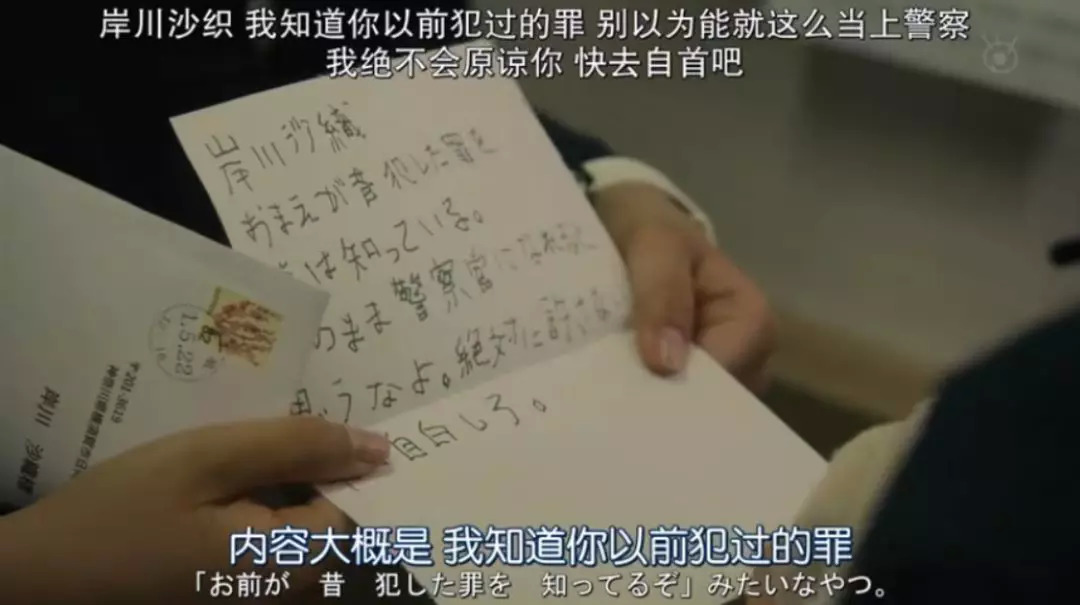 岸川沙织 我知道你以前犯过的罪 别以为能就这么当上警察
我绝不会原谅你 快去自首吧
岸川沙織
おまえが昔犯した罪を
は知っている。
のまま警察官になれると
思うなよ。絶対に許さない
自白しろ。
1.5.22
82
〒201-3019
岸川 沙織様
内容大概是 我知道你以前犯过的罪
「お前が 昔 犯した罪を 知ってるぞ」みたいなやつ。